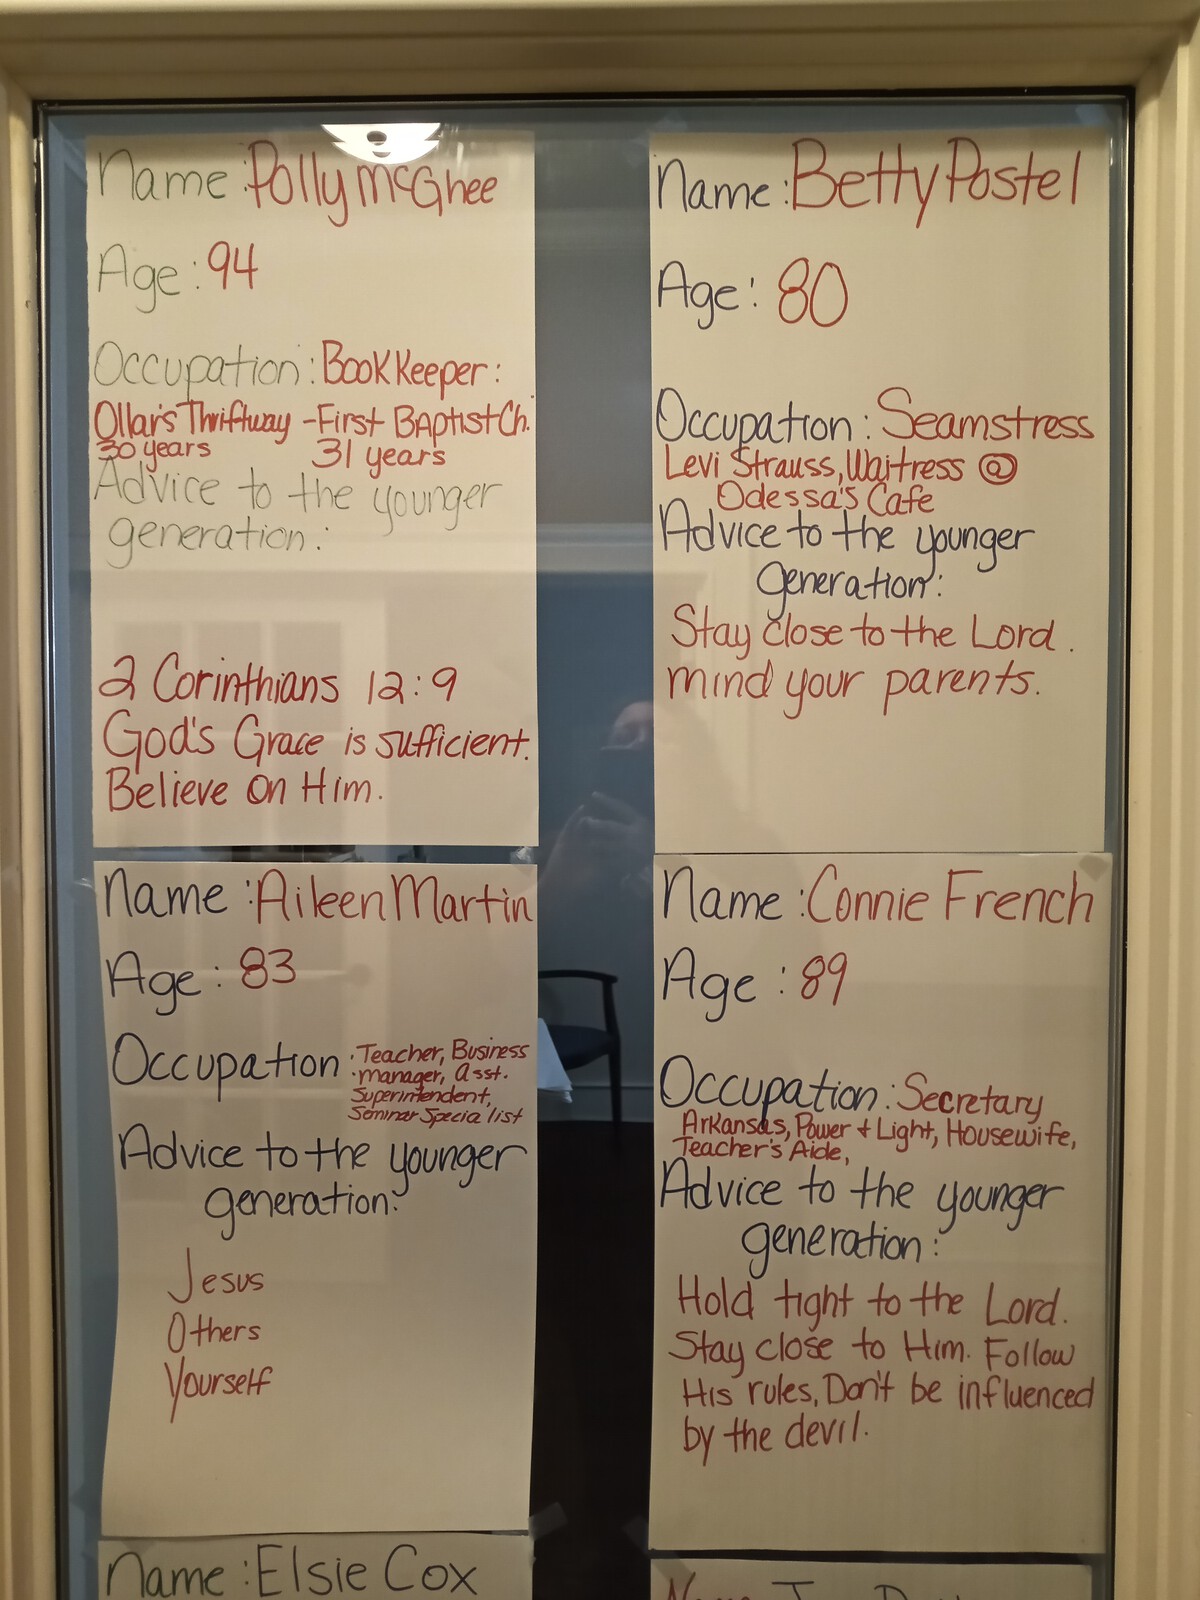 Name: Polly McGhee
Age: 94
Occupation: Bookkeeper:
Ollar's Thriftway - First Baptist Ch.
30 years 31 years
Advice to the younger
generation:
2 Corinthians 12:9
God's Grace is sufficient.
Believe on Him.
Name: Betty Postel
Age: 80
Occupation: Seamstress
Levi Strauss, Waitress @
Odessa's Cafe
Advice to the younger
generation:
Stay close to the Lord.
Mind your parents.
Name: Aileen Martin
Age: 83
Occupation: Teacher, Business
manager, Asst.
Superintendent,
Seminar Specialist
Advice to the younger
generation:
Jesus
Others
Yourself
Name: Connie French
Age: 89
Occupation: Secretary
Arkansas, Power & Light, Housewife,
Teacher's Aide,
Advice to the younger
generation:
Hold tight to the Lord.
Stay close to Him. Follow
His rules, Don't be influenced
by the devil.
Name: Elsie Cox